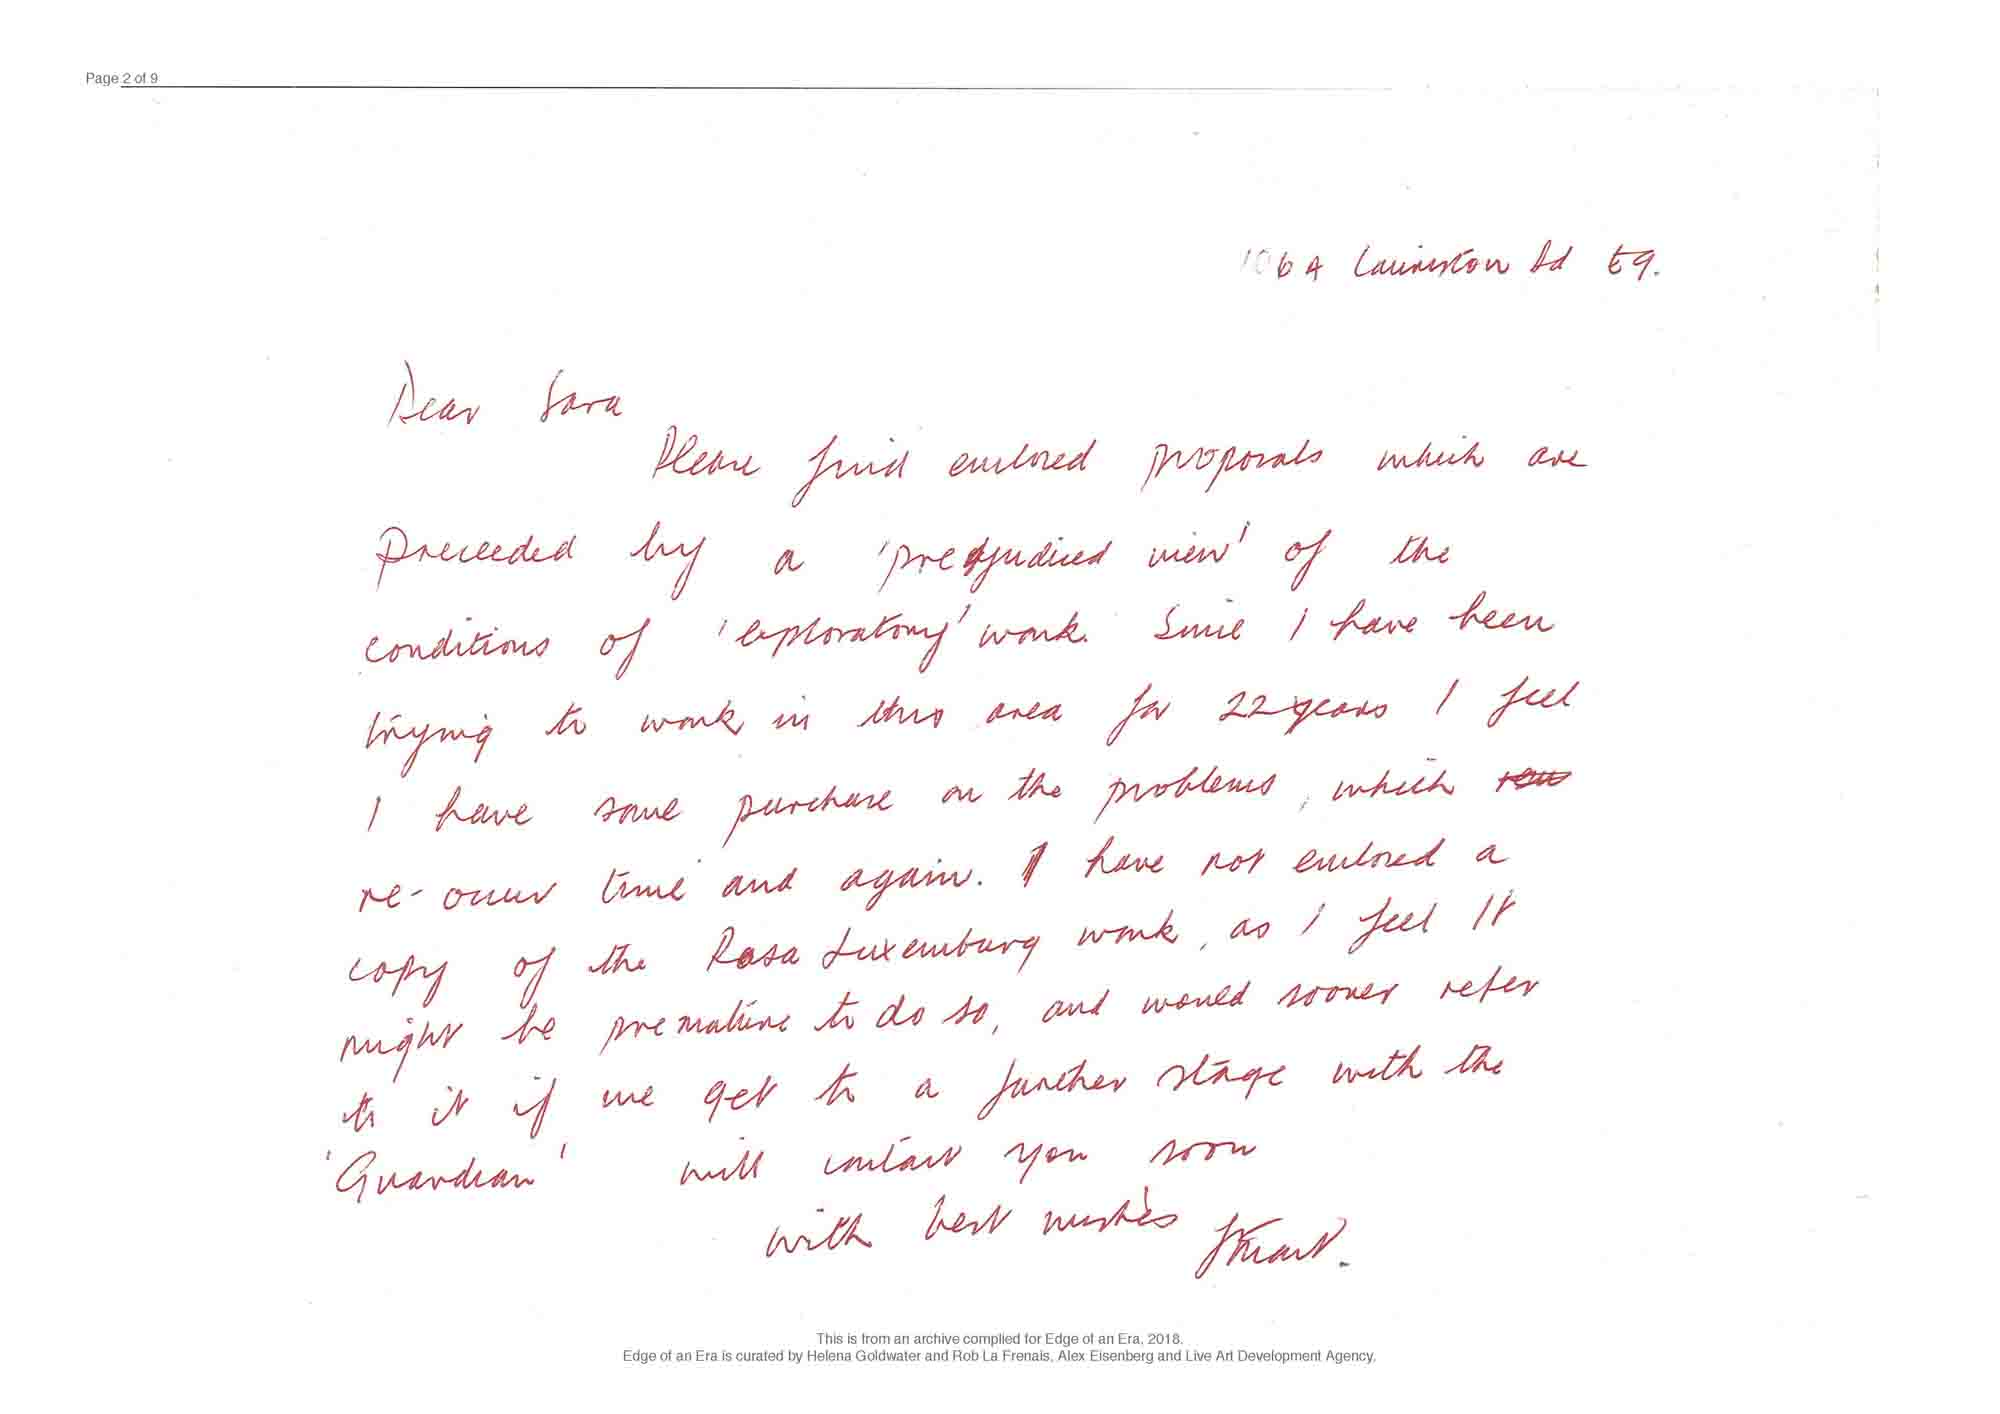 Page 2 of 9
106A Lauriston Rd E9.
Dear Sara
Please find enclosed proposals which are
preceeded by a 'prejudiced view' of the
conditions of 'exploratory' work. Since I have been
trying to work in this area for 22 years I feel
I have some purchase on the problems, which
re-occur time and again. I have not enclosed a
copy of the Rosa Luxemburg work, as I feel it
might be premature to do so, and would sooner refer
to it if we get to a further stage with the
'Guardian' will contact you soon
with best wishes Stuart.
This is from an archive complied for Edge of an Era, 2018.
Edge of an Era is curated by Helena Goldwater and Rob La Frenais, Alex Eisenberg and Live Art Development Agency.